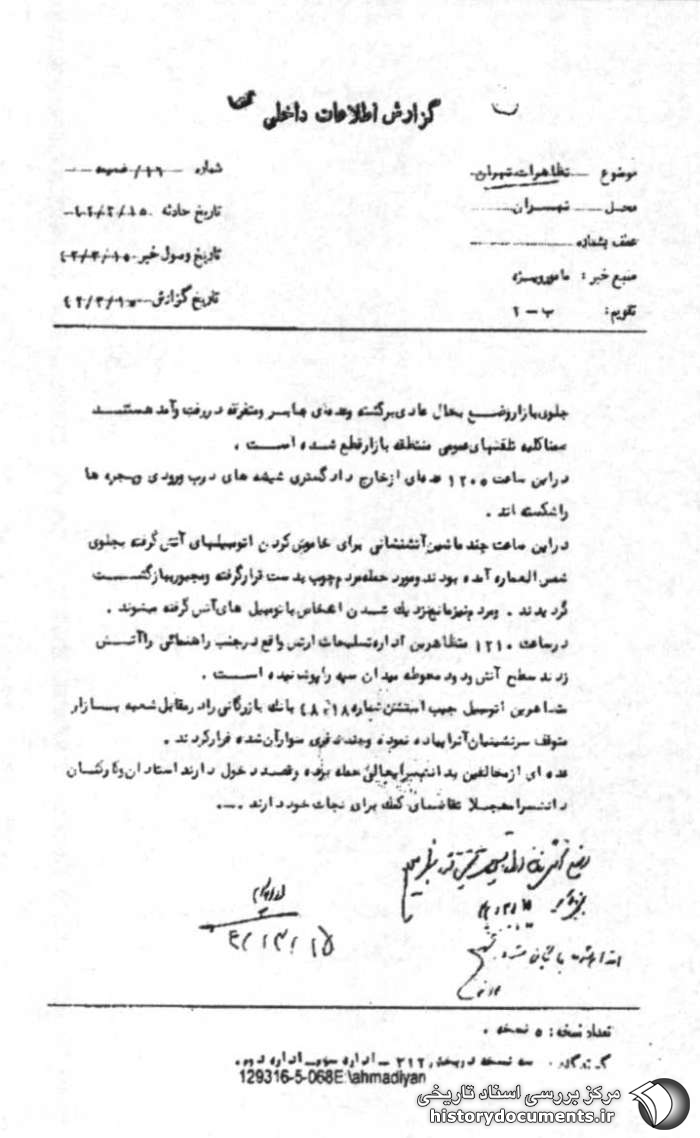 گزارش اطلاعات داخلی
موضوع تظاهرات تهران
شماره ۱۶/ ضمیمه
محل تهران
تاریخ حادثه ۴۲/۳/۱۵
عطف بشماره
تاریخ وصول خبر ۴۲/۳/۱۵
منبع خبر : مامور ویژه
تاریخ گزارش ۴۲/۳/۱۵
تقویم: ب - ۲
جلوی بازار وضع بحال عادی برگشته وعده‌ای عابر ومتفرقه در رفت وآمد هستند
ضمنا کلیه تلفنهای عمومی منطقه بازار قطع شده است .
در این ساعت ۱۲۰۵ عده‌ای از خارج دادگستری شیشه های درب ورودی وپنجره ها
را شکسته اند .
در این ساعت چند ماشین آتشنشانی برای خاموش کردن اتومبیلهای آتش گرفته بجلوی
شمس العماره آمده بودند ومورد حمله مردم چوب بدست قرار گرفته ومجبور ببازگشت
گردیدند . ومردم نیز مانع نزدیک شدن اشخاص باتومبیل های آتش گرفته میشوند .
در ساعت ۱۲۱۰ متظاهرین اداره تسلیحات ارتش واقع در جنب راهنمائی را آتش
زدند سطح آتش ودود محوطه میدان سپه را پوشانیده است .
متظاهرین اتومبیل جیپ استیشن شماره بانک بازرگانی را در مقابل شعبه بازار
متوقف سرنشینان آنرا پیاده نموده وچند نفری سوار آن شده فرار کردند .
عده ای از مخالفین بدانشسرایعالی حمله برده وقصد دخول دارند استادان وکارکنان
دانشسرا معجلا تقاضای کمک برای نجات خود دارند ....
۴۲/۳/۱۵
تعداد نسخه : ۵ نسخه .
گیرندگان : سه نسخه در بخش ۳۱۲ - اداره سوم - اداره دوم .
129316-5-068E:\ahmadiyan
مرکز بررسی اسناد تاریخی
historydocuments.ir